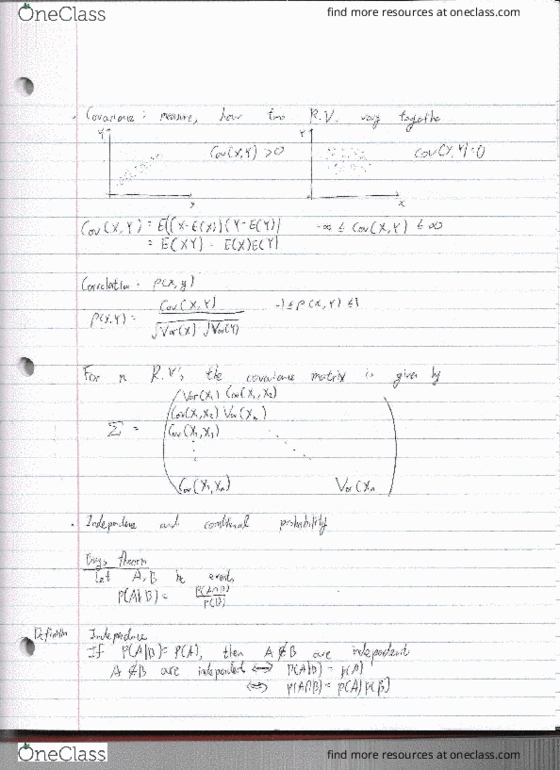 OneClass
find more resources at oneclass.com
. Covariance: measure, how two R.V. vary together
Y
Cov(X,Y) > 0
Y
Cov(X,Y) = 0
x
Cov(X,Y) = E[(X-E(X))(Y-E(Y)]
-∞ ≤ Cov(X,Y) ≤ ∞
= E(XY) - E(X)E(Y)
Correlation: ρ(x,y)
ρ(X,Y) = Cov(X,Y) / √Var(X) √Var(Y)
-1 ≤ ρ(X,Y) ≤ 1
For n R.V's, the covariance matrix is given by
Var(X₁) Cov(X₁,X₂)
Σ =
Cov(X₁,Xₙ)
Var(Xₙ
. Independence and conditional probability
Let A,B be events
P(A|B) = P(A∩B) / P(B)
Definition Independence
If P(A|B) = P(A), then A & B are independent
A & B are independent ⟺ P(A|B) = P(A)
⟺ P(A∩B) = P(A) P(B)
OneClass
find more resources at oneclass.com